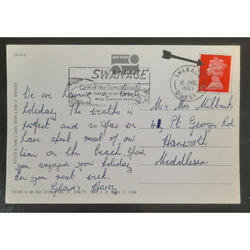 SWANAGE
Gem of the Dorset Coast
SWANAGE
We are having a lovely
holiday. The weather is
perfect and so far we
have spent most of our
time on the beach. Glad
you enjoyed your holiday
See you next week.
Mr & Mrs Milbank
St Georges Rd
Hanworth
Middlesex